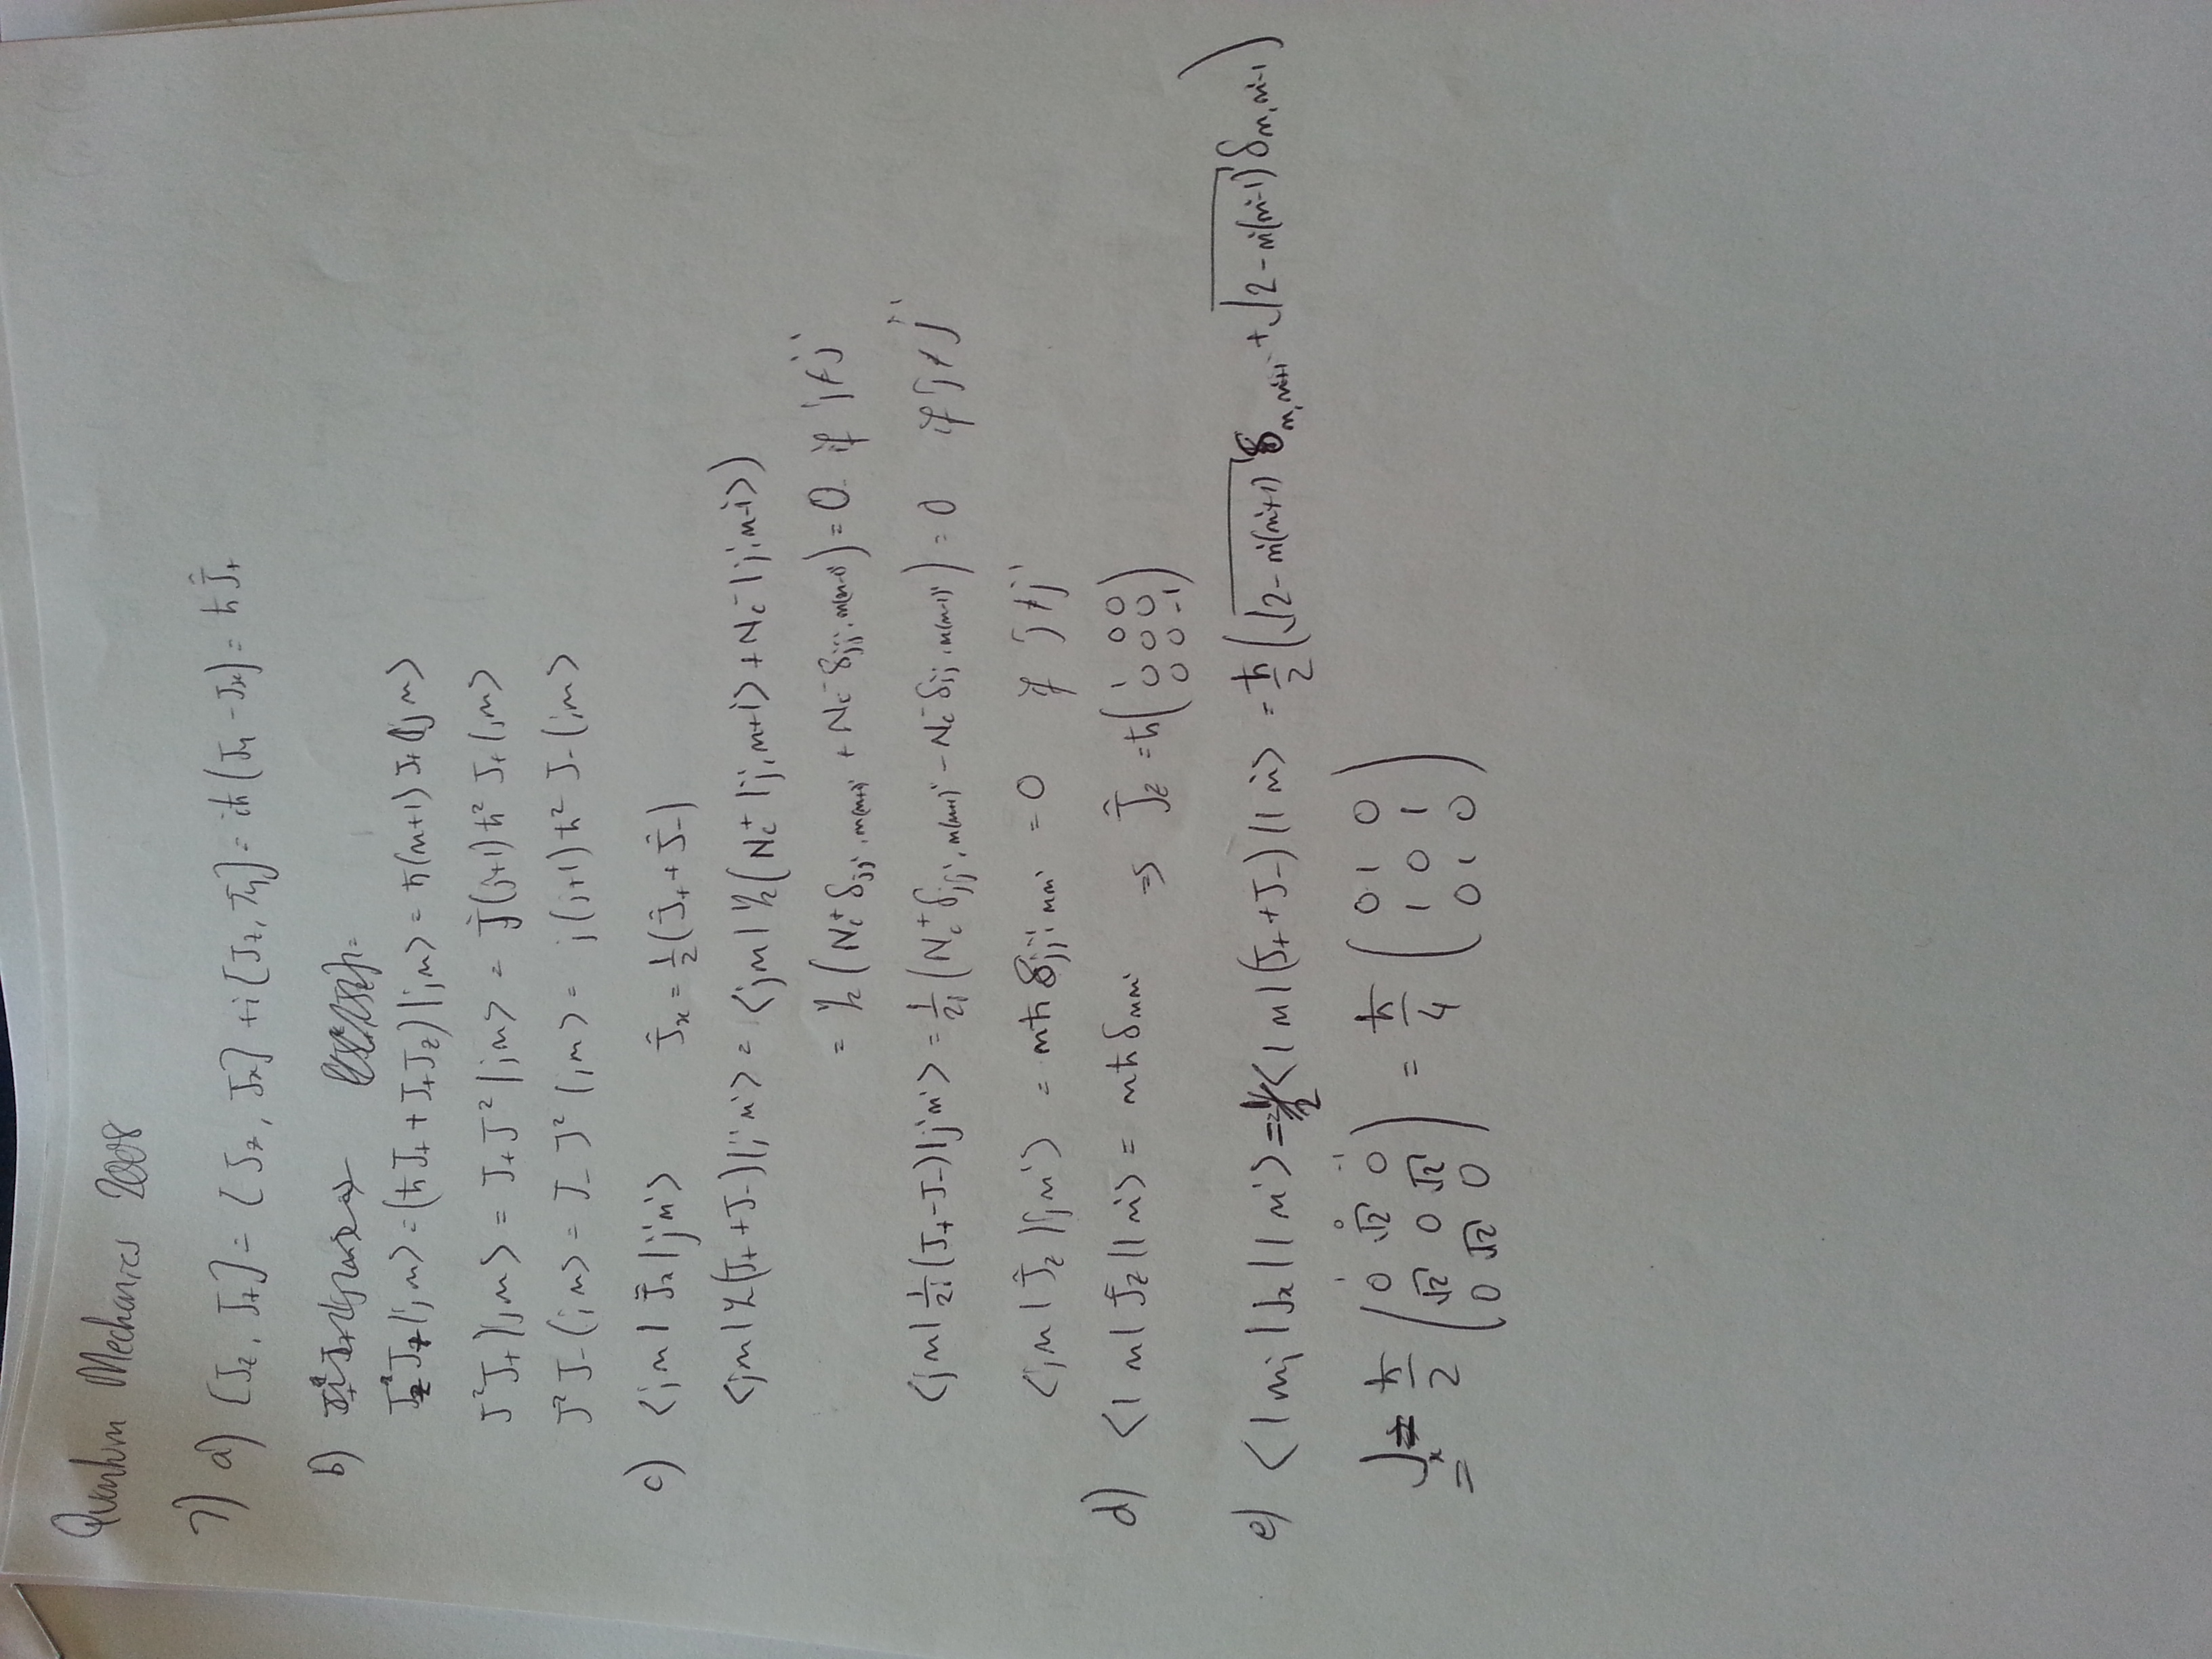 Quantum Mechanics 2008
7) a) [J_z, J_+] = [J_z, J_x] + i[J_z, J_y] = iħ(J_y - J_x) = ħĴ_+
b)
J_z J_+ |j m> = (ħJ_+ + J_+J_z)|j m> = ħ(m+1) J_+ |j m>
J² J_+ |j m> = J_+ J² |j m> = j(j+1)ħ² J_+ |j m>
J² J_- |j m> = J_- J² |j m> = j(j+1)ħ² J_- |j m>
c) <j m| Ĵ_x |j' m'>    Ĵ_x = 1/2 (Ĵ_+ + Ĵ_-)
<j m| 1/2 (J_+ + J_-) |j' m'> = <j m| 1/2 (N_c^+ |j, m+1> + N_c^- |j, m-1>)
= 1/2 (N_c^+ δ_{jj', m(m+1)'} + N_c^- δ_{jj', m(m-1)'}) = 0 if j ≠ j'
<j m| 1/2i (J_+ - J_-) |j' m'> = 1/2i (N_c^+ δ_{jj', m(m+1)'} - N_c^- δ_{jj', m(m-1)'}) = 0 if j ≠ j'
<j m| Ĵ_z |j m'> = mħ δ_{jj' mm'} = 0 if j ≠ j'
d) <1 m| Ĵ_z |1 m'> = mħ δ_{mm'} ⇒ Ĵ_z = ħ( 1 0 0
0 0 0
0 0 -1 )
e) <1 m_j| J_x |1 m'> = 1/2 <1 m| (J_+ + J_-) |1 m'> = ħ/2 (√(2 - m'(m'+1)) δ_{m, m'+1} + √(2 - m'(m'-1)) δ_{m, m'-1})
1 0 -1
J_x = ħ/2 ( 0 √2 0 ) = ħ/4 ( 0 1 0 )
( √2 0 √2 ) ( 1 0 1 )
( 0 √2 0 ) ( 0 1 0 )